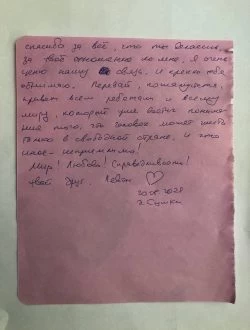 спасибо за всё, что ты делаешь,
за твоё отношение ко мне, я очень
ценю нашу связь. И крепко тебя
обнимаю. Передай, пожалуйста,
привет всем ребятам и всему
миру, который уже достиг понима-
ния того, что человек может жить
только в свободной стране, и это
иное - неприемлемо!
Мир! Любовь! Справедливость!
твой друг. Леван ♡
г. Сумки